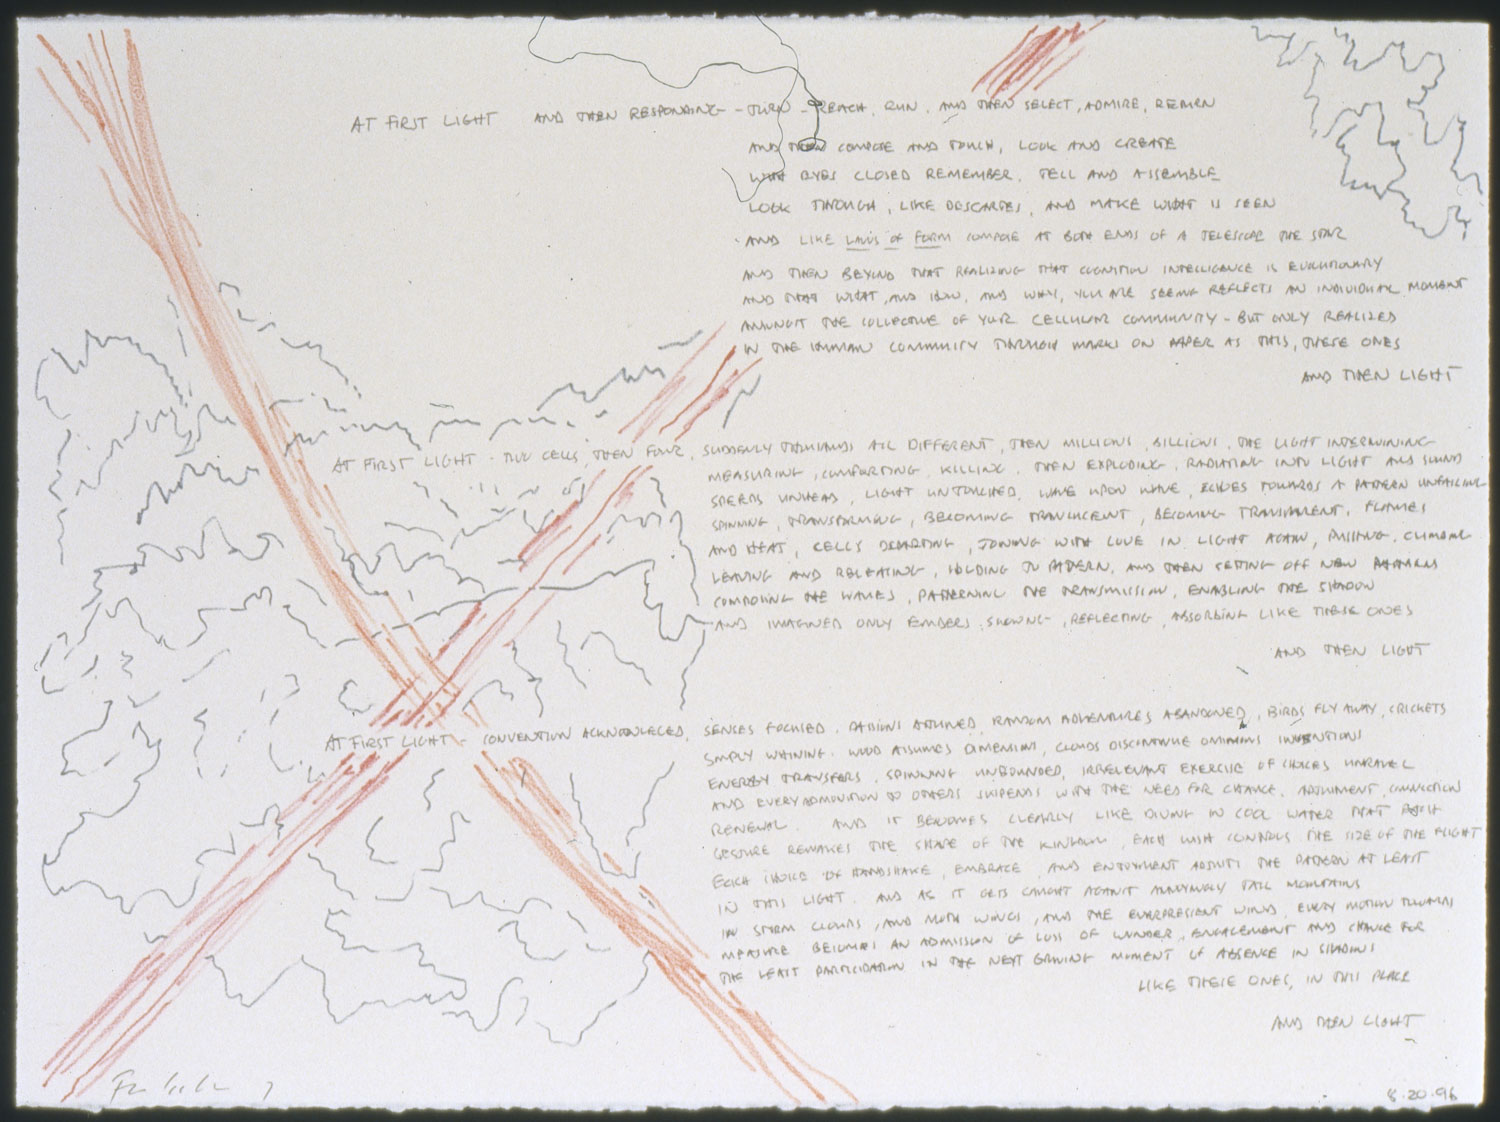 AT FIRST LIGHT AND THEN RESPONDING - TURN - REACH, RUN, AND THEN SELECT, ADMIRE, RETURN
AND THEN COMPOSE AND TOUCH, LOOK AND CREATE
WITH EYES CLOSED REMEMBER, TELL AND ASSEMBLE
LOOK THROUGH, LIKE DESCARTES, AND MAKE WHAT IS SEEN
AND LIKE LAWS OF FORM COMPOSE AT BOTH ENDS OF A TELESCOPE THE STAR
AND THEN BEYOND THAT REALIZING THAT COGNITION INTELLIGENCE IS EVOLUTIONARY
AND THAT WHAT, AND HOW, AND WHY, YOU ARE SEEING REFLECTS AN INDIVIDUAL MOMENT
AMONGST THE COLLECTIVE OF YOUR CELLULAR COMMUNITY - BUT ONLY REALIZED
IN THE HUMAN COMMUNITY THROUGH MARKS ON PAPER AS THIS, THESE ONES
AND THEN LIGHT
AT FIRST LIGHT - TWO CELLS, THEN FOUR, SUDDENLY THOUSANDS ALL DIFFERENT, THEN MILLIONS, BILLIONS, THE LIGHT INTERTWINING
MEASURING, COMFORTING, KILLING, THEN EXPLODING, RADIATING INTO LIGHT AND SOUND
SPEEDS UNHEAD, LIGHT UNTOUCHED, WAVE UPON WAVE, ECHOES TOWARDS A PATTERN UNFAILING
SPINNING, TRANSFORMING, BECOMING TRANSLUCENT, BECOMING TRANSPARENT, FLAMES
AND HEAT, CELLS DEPARTING, JOINING WITH LOVE IN LIGHT AGAIN, PULLING, CLIMBING
LEAVING AND RELEASING, HOLDING TO PATTERN, AND THEN SETTING OFF NEW PATTERNS
COMPOSING THE WAVES, PATTERNING THE TRANSMISSION, ENABLING THE SHADOW
AND IMAGINED ONLY EMBERS, SHOWING, REFLECTING, ABSORBING LIKE THESE ONES
AND THEN LIGHT
AT FIRST LIGHT - CONVENTION ACKNOWLEDGED, SENSES FOCUSED, PASSIONS ATTUNED, RANDOM ADVENTURES ABANDONED, BIRDS FLY AWAY, CRICKETS
SIMPLY WHINING. WOOD ASSUMES DIMENSIONS, CLOUDS DISCONTINUE OMINOUS INVENTIONS
ENERGY TRANSFERS, SPINNING UNBOUNDED, IRRELEVANT EXERCISE OF CHOICES UNRAVEL
AND EVERY ADMONITION TO OTHERS SUSPENDS WITH THE NEED FOR CHANGE, ADJUSTMENT, CONNECTION
RENEWAL. AND IT BECOMES CLEARLY LIKE DIVING IN COOL WATER THAT EACH
GESTURE REMAKES THE SHAPE OF THE KINGDOM, EACH WISH CONTROLS THE SIZE OF THE FLIGHT
EACH CHOICE OF HANDSHAKE, EMBRACE, AND ENJOYMENT ADJUSTS THE PATTERN AT LEAST
IN THIS LIGHT. AND AS IT GETS CAUGHT AGAINST ANNOYINGLY TALL MOUNTAINS
IN STORM CLOUDS, AND MOTH WINGS, AND THE EVERPRESENT WIND, EVERY MOTION
MEASURE BECOMES AN ADMISSION OF LOSS OF WONDER, ENGAGEMENT AND CHANCE FOR
THE LEAST PARTICIPATION IN THE NEXT GROWING MOMENT OF ABSENCE IN SHADOWS
LIKE THESE ONES, IN THIS PLACE
AND THEN LIGHT
8.20.96